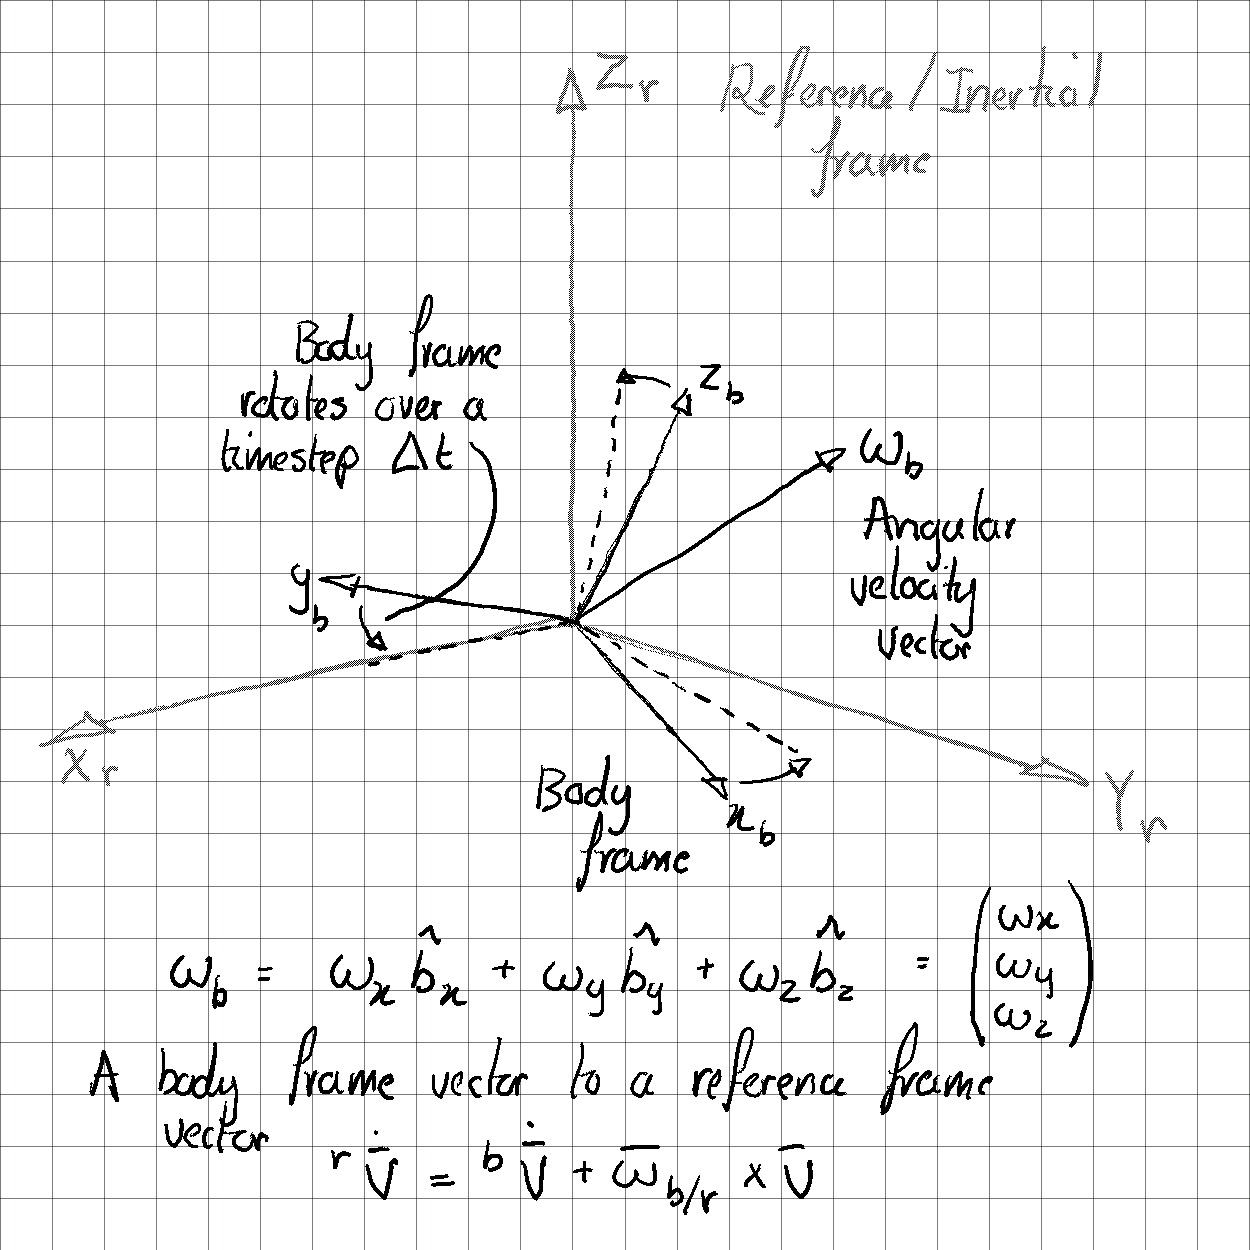 Zr Reference/Inertial
frame
Body frame
rotates over a
timestep Δt
z_b
ω_b
Angular
velocity
vector
y_b
X_r
Y_r
Body
frame
x_b
ω_b = ω_x b̂_x + ω_y b̂_y + ω_z b̂_z = (ω_x ω_y ω_z)
A body frame vector to a reference frame
vector
^r v̄̇ = ^b v̄̇ + ω̄_b/r × v̄